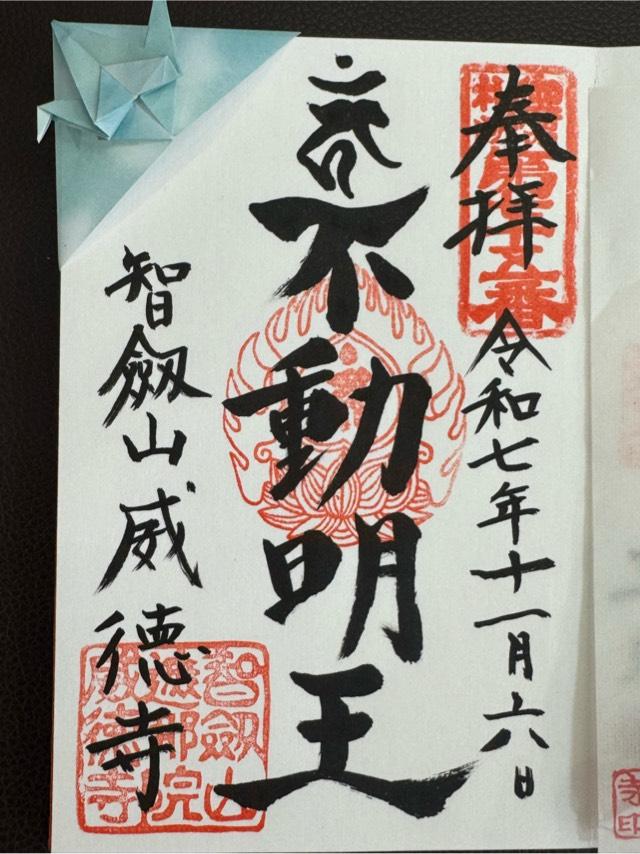 奉拝
令和七年十一月六日
不動明王
智劔山威徳寺
智劔山
遮那院
威徳寺